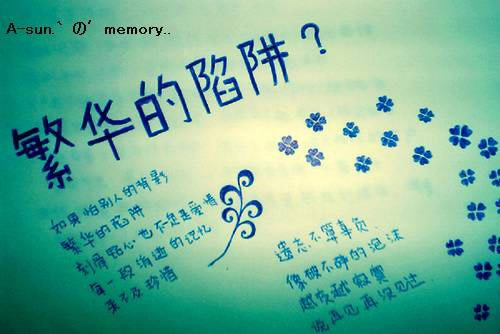 A-sun.`の′memory..
繁华的陷阱?
如果怕别人的背影
繁华的陷阱
刻骨铭心也不一定是爱情
每一段消逝的记忆
来不及珍惜
遗忘不算辜负
像破不碎的泡沫
越夜越寂寞
说再见再没见过